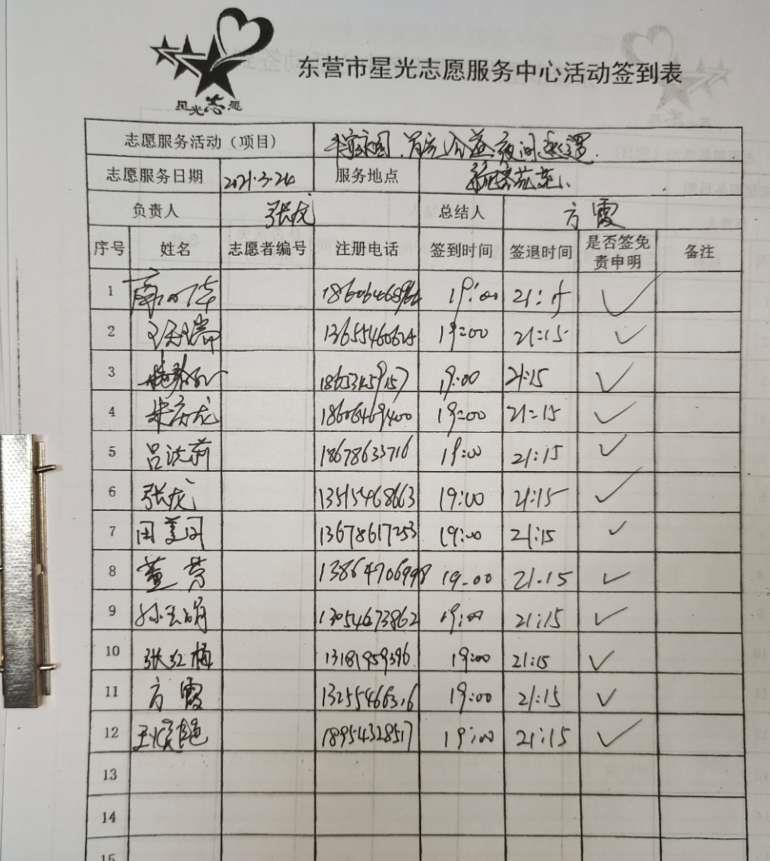 星光志愿
东营市星光志愿服务中心活动签到表
志愿服务活动（项目）
志愿服务日期 2021.3.24 服务地点
负责人 张龙 总结人 方霞
序号 姓名 志愿者编号 注册电话 签到时间 签退时间 是否签免责申明 备注
1 19:00 21:15 ✓
2 19:00 21:15 ✓
3 19:00 21:15 ✓
4 18606469400 19:00 21:15 ✓
5 18678633716 19:00 21:15 ✓
6 张龙 13515468663 19:00 21:15 ✓
7 13678617253 19:00 21:15 ✓
8 董芳 13864706998 19:00 21:15 ✓
9 13054673862 19:00 21:15 ✓
10 张红梅 13181959396 19:00 21:15 ✓
11 方霞 13255466316 19:00 21:15 ✓
12 18954328517 19:00 21:15 ✓
13
14
15